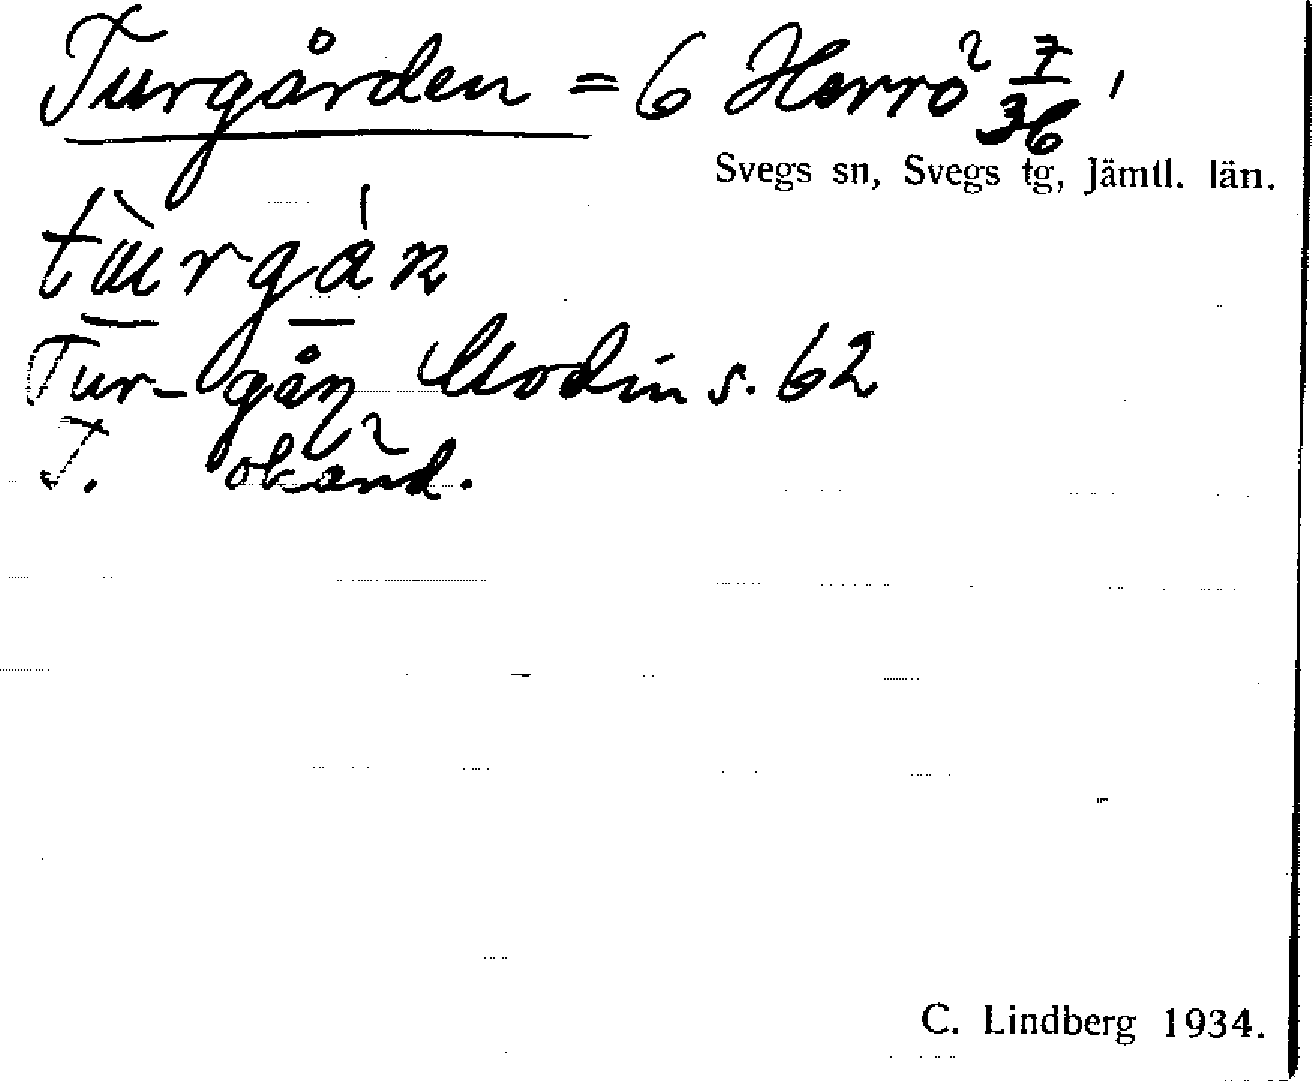 Turgården = 6 Herrö 7/36
Svegs sn, Svegs tg, Jämtl. län.
tùrgán
Tur-gån Modin s. 62
T. okänd.
C. Lindberg 1934.